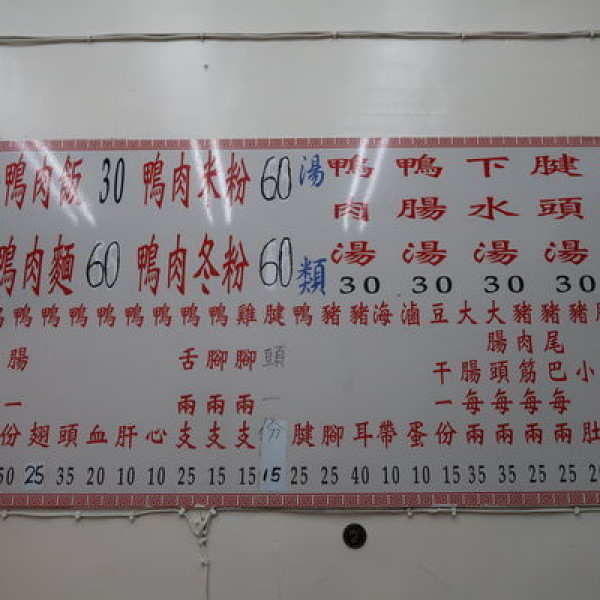 鴨肉飯 30
鴨肉麵 60
鴨肉米粉 60
鴨肉冬粉 60
湯類
鴨肉湯 30
鴨腸湯 30
下水湯 30
腱頭湯 30
腸一份 50
鴨翅 25
鴨頭 35
鴨血 20
鴨肝 10
鴨心 10
鴨舌兩支 25
鴨腳兩支 15
雞腳兩支 15
腱頭一份 15
鴨腱 25
豬腳 25
豬耳 40
海帶 10
滷蛋 10
豆干一份 15
大腸每兩 35
大腸頭每兩 35
豬肉筋每兩 25
豬尾巴每兩 25
豬小肚